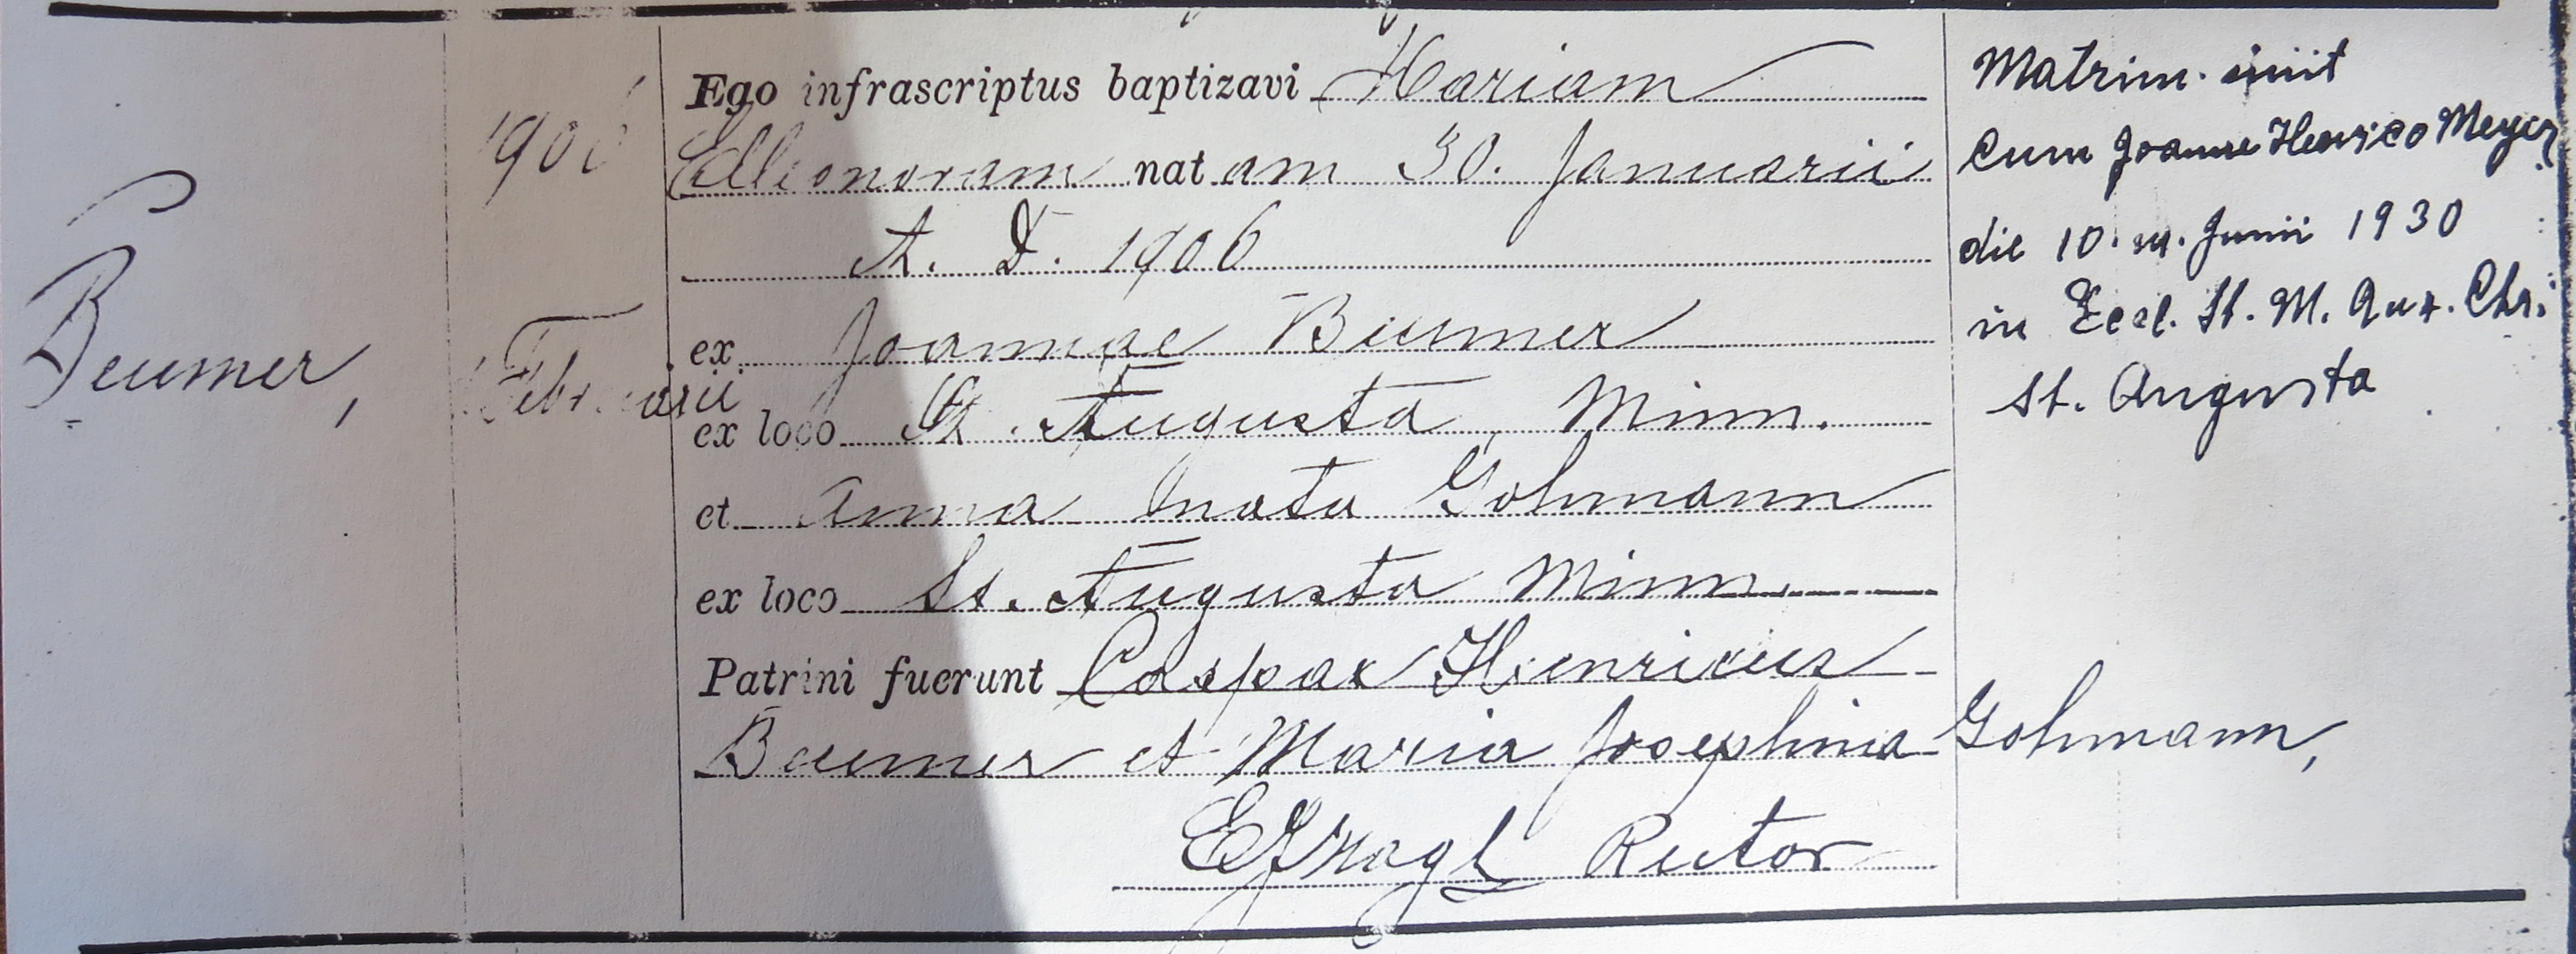 Beumer,
1906
Februarii
Ego infrascriptus baptizavi Mariam
Elleonoram natam 30. Januarii
A. D. 1906
ex Joannae Beumer
ex loco St. Augusta, Minn.
et Anna nata Gohmann
ex loco St. Augusta Minn.
Patrini fuerunt Caspar Henricus
Beumer et Maria Josephina Gohmann,
Rector
Matrim. iniit
cum Joanne Henrico Meyer
die 10. m. Junii 1930
in Eccl. St. M. Aux. Chr.
St. Augusta